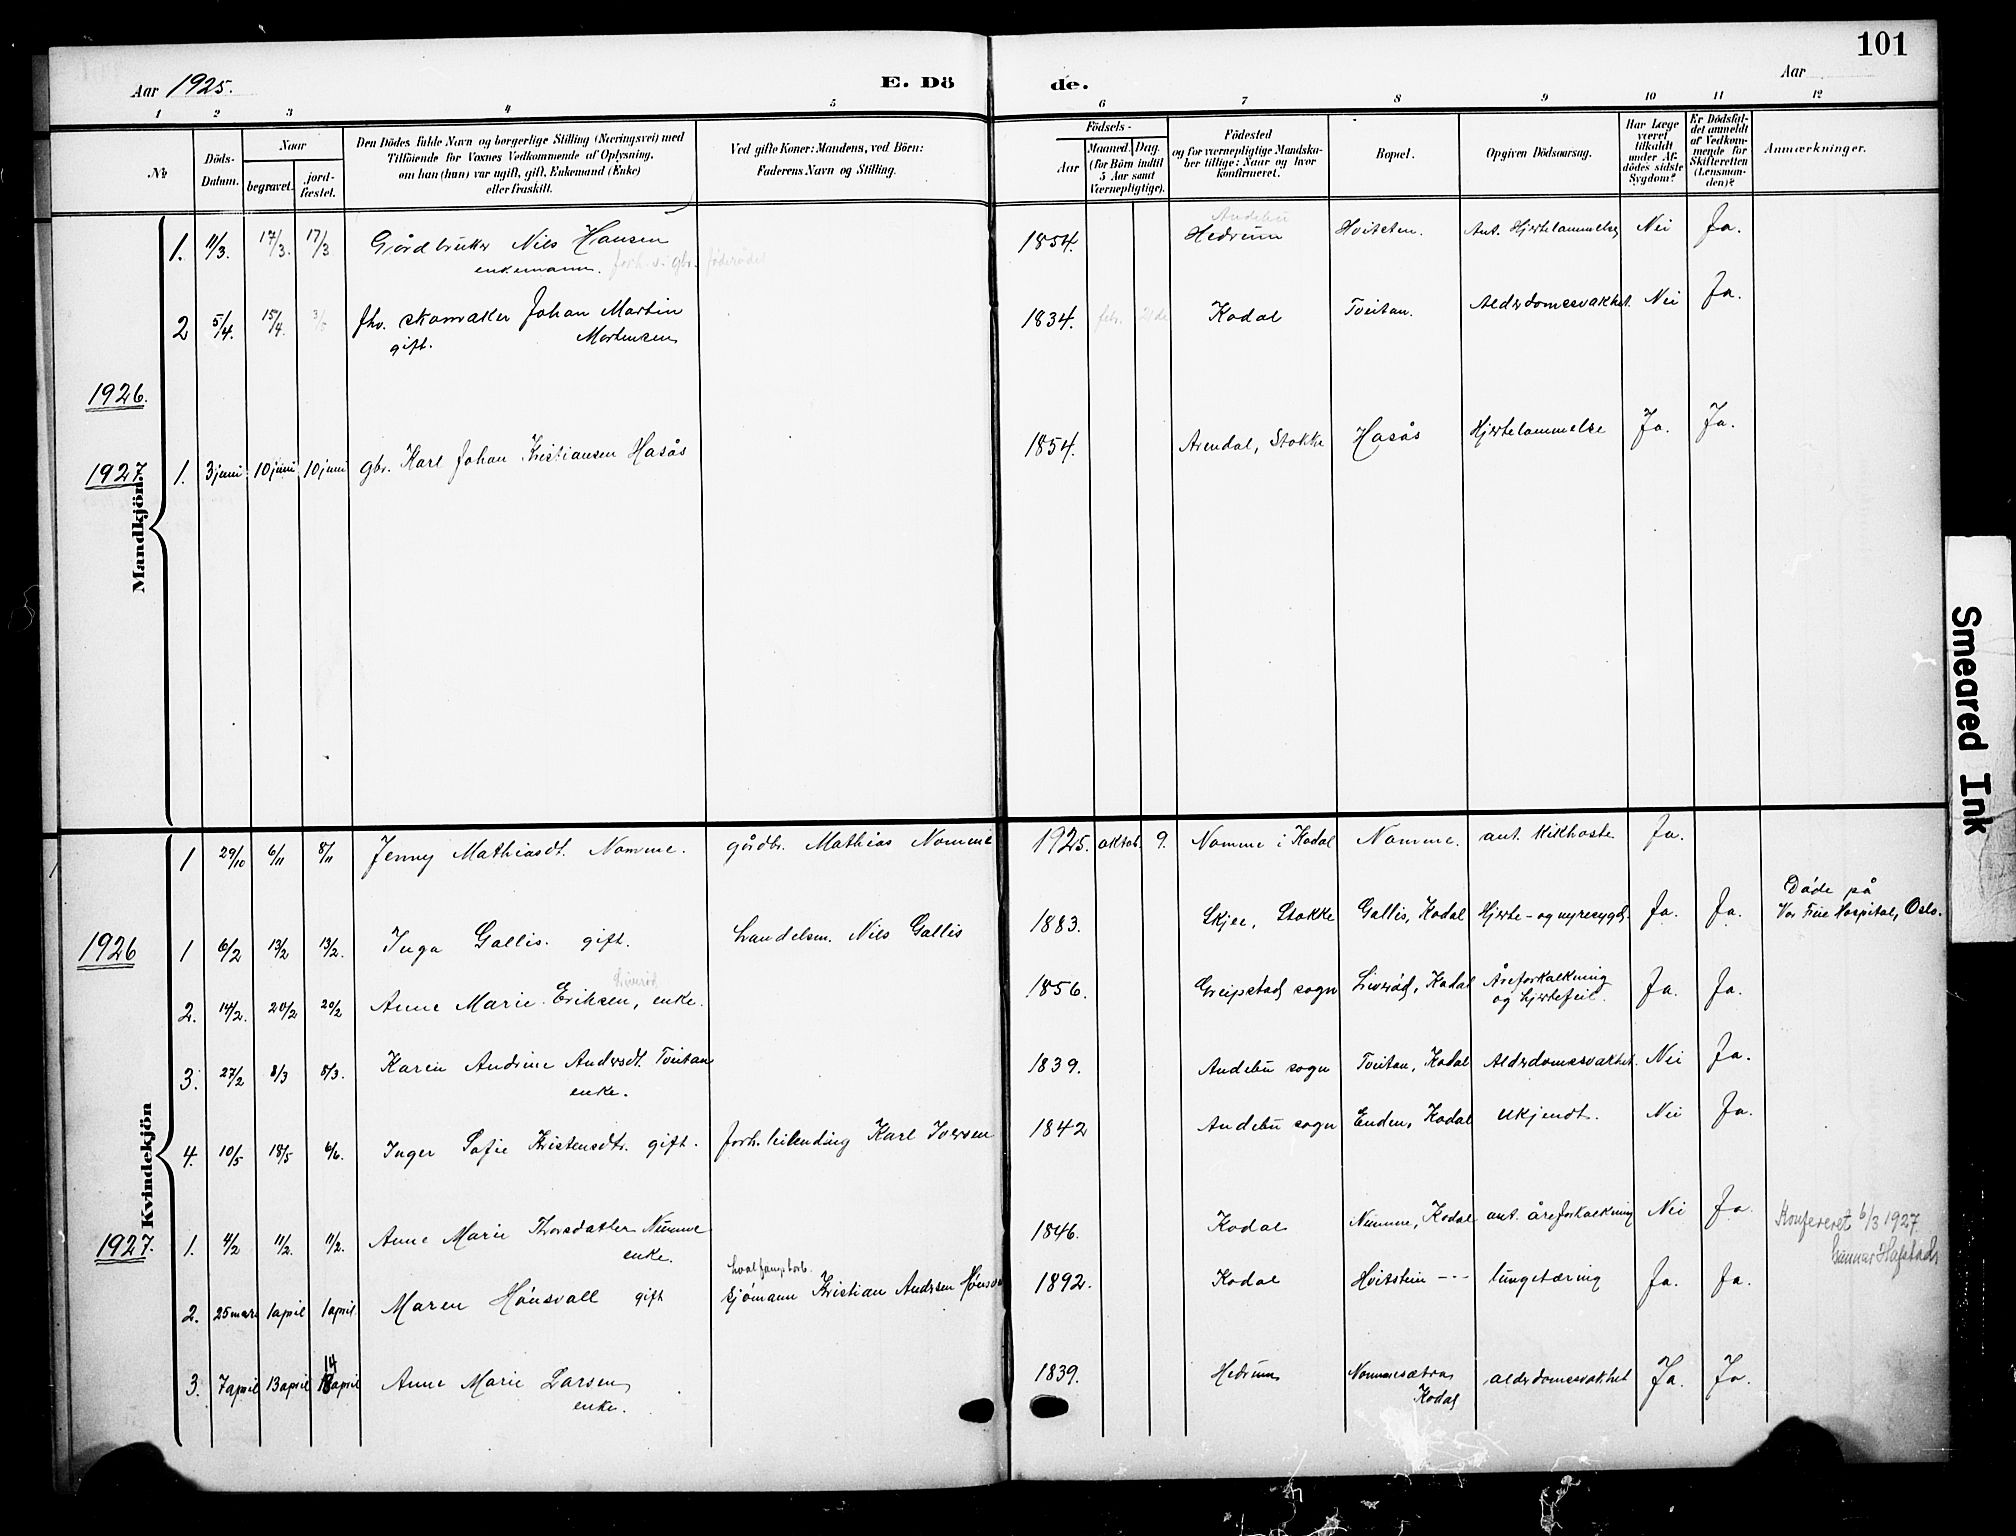 101
Aar 1925.
E. Dö
de.
Aar
1 2 3 4 5 6 7 8 9 10 11 12
No
Döds-Datum.
Naar
begravet.
jord-fæstet.
Den Dödes fulde Navn og borgerlige Stilling (Næringsvei) med
Tilföiende for Voxnes Vedkommende af Oplysning,
om han (hun) var ugift, gift, Enkemand (Enke)
eller fraskilt.
Ved gifte Koner: Mandens, ved Börn:
Faderens Navn og Stilling.
Födsels-
Aar
Maaned. Dag.
(for Börn indtil
5 Aar samt
Værnepligtige).
Födested
og for værnepligtige Mandska-
ber tillige: Naar og hvor
konfirmeret.
Bopæl.
Opgiven Dödsaarsag.
Har Læge
været
tilkaldt
under Af-
dödes sidste
Sygdom?
Er Dödsfal-
det anmeldt
af Vedkom-
mende for
Skifteretten
(Lensman-
den)?
Anmærkninger.
Mandkjön.
1. 11/3. 17/3. 17/3 Gårdbruker Nils Hansen 1854. Andebu Hedrum Hvitsten. Ant. Hjertelammelse Nei Ja.
enkemann. forh.v. gbr. föderåde
2 5/4. 15/4. 3/5 fhv. skomaker Johan Martin 1834. febr. 21de Kodal Tveitan. Alderdomssvakhet. Nei Ja.
gift. Mortensen
1926.
1927. 1. 3 juni 10 juni 10 juni gbr. Karl Johan Kristiansen Hasås 1854. Arendal, Stokke Hasås Hjertelammelse Ja. Ja.
Kvindekjön
1 29/10 6/11 8/11 Jenny Mathiasdt. Nomme. gårdbr. Mathias Nomme 1925. oktob. 9. Nomme i Kodal Nomme. ant. kikhoste Ja.
1926 1 6/2 13/2 13/2. Inga Gallis. gift. handelsm. Nils Gallis 1883. Skjee, Stokke Gallis, Kodal Hjerte- og nyresygd. Ja. Ja. Döde på
Vor Frue Hospital, Oslo.
Liverød
2. 14/2. 20/2 20/2 Anne Marie Eriksen, enke. 1856. Greipstad sogn Liverød, Kodal Åreforkalkning Ja. Ja.
og hjertefeil.
3. 27/2 8/3 8/3. Karen Andrine Andersdt. Tveitan 1839. Andebu sogn Tveitan, Kodal Alderdomssvakhet. Nei Ja.
enke.
4. 10/5 18/5 6/6. Inger Sofie Kristensdtr. gift. forh. leilending Karl Iversen 1842 Andebu sogn Enden, Kodal ukjendt. Nei Ja.
1927. 1. 4/2 11/2. 11/2. Anne Marie Thorsdatter Numme 1846. Kodal Numme, Kodal ant. åreforkalkning Nei Ja. Konfereret 6/3 1927
enke. Gunnar Hafstad
hvalfangstarb.
2. 25 mars 1 april 1 april. Maren Hønsvall gift sjømann Kristian Andersen 1892. Kodal Hvitstein --- lungetæring Ja. Ja.
14
3. 7 april 13 april april Anne Marie Larsen 1839. Hedrum Nommesætra Kodal alderdomssvakhet Ja. Ja.
enke.
Smeared Ink